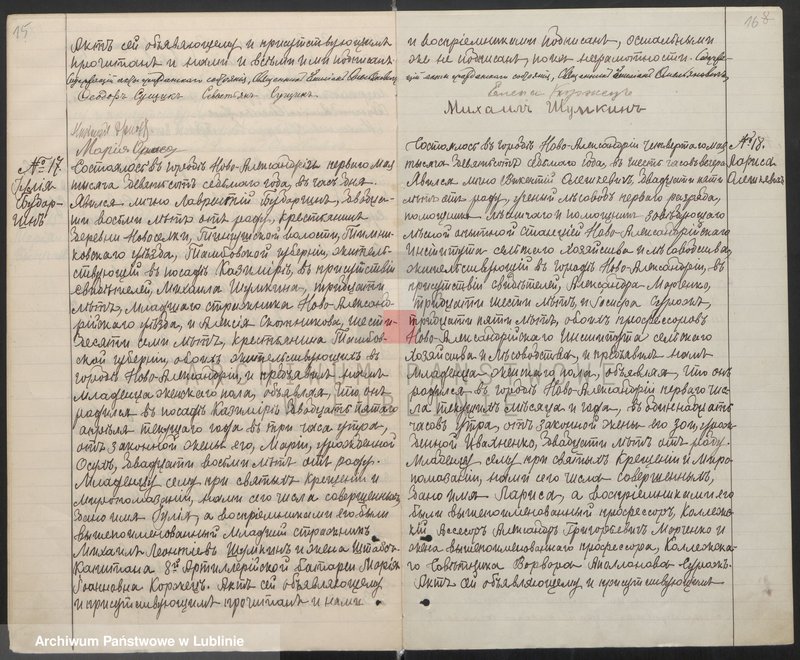 15
Актъ сей объявляющему и присутствующимъ
прочитанъ и нами и всѣми ими подписанъ.
Содержащій акты гражданскаго состоянія, Священникъ
Ѳеодоръ Сущикъ Севастьянъ Сущикъ.
Марія
№ 17.
Юлія
Бубаргинъ
Состоялось въ городѣ Ново-Александріи перваго мая
тысяча девятьсотъ седьмого года, въ часъ дня.
Явился лично Лаврентій Бубаргинъ, двадца-
ти восьми лѣтъ отъ роду, крестьянинъ
деревни Новоселки, волости,
уѣзда, Тамбовской губерніи, житель-
ствующій въ посадѣ Казимірѣ, въ присутствіи
свидѣтелей, Михаила Шумкина, тридцати
лѣтъ, младшаго стражника Ново-Алексан-
дрійскаго уѣзда, и Алексія шести-
десяти семи лѣтъ, крестьянина Тамбов-
ской губерніи, обоихъ жительствующихъ въ
городѣ Ново-Александріи, и предъявилъ намъ
младенца женскаго пола, объявляя, что онъ
родился въ посадѣ Казимірѣ двадцать пятаго
апрѣля текущаго года въ три часа утра,
отъ законной жены его, Маріи, урожденной
двадцати восьми лѣтъ отъ роду.
Младенцу сему при святыхъ крещеніи и
мѵропомазаніи, нами сего числа совершенныхъ,
дано имя Юлія, а воспріемниками его были
вышепоименованный младшій стражникъ
Михаилъ Леонтьевъ Шумкинъ и жена Штабсъ-
Капитана 8й Артиллерійской батареи Марія
Іоанновна Коржецъ. Актъ сей объявляющему
и присутствующимъ прочитанъ и нами
16
и воспріемниками подписанъ, остальными
же не подписанъ, по ихъ неграмотности. Содержа-
щій акты гражданскаго состоянія, Священникъ
Елена Коржецъ
Михаилъ Шумкинъ
№ 18.
Лариса
Олешкевичъ
Состоялось въ городѣ Ново-Александріи четвертаго мая
тысяча девятьсотъ седьмого года, въ шесть часовъ вечера
Явился лично Викентій Олешкевичъ, двадцати пяти
лѣтъ отъ роду, ученый лѣсоводъ перваго разряда,
помощникъ лѣсничаго и помощникъ завѣдующаго
лѣсной опытной станціей Ново-Александрійскаго
Института сельскаго хозяйства и лѣсоводства,
жительствующій въ городѣ Ново-Александріи, въ
присутствіи свидѣтелей, Александра Морченко,
тридцати шести лѣтъ и Іосифа Сурожъ,
тридцати пяти лѣтъ, обоихъ профессоровъ
Ново-Александрійскаго Института сельскаго
хозяйства и лѣсоводства, и предъявилъ намъ
младенца женскаго пола, объявляя, что онъ
родился въ городѣ Ново-Александріи перваго чис-
ла текущихъ мѣсяца и года, въ одиннадцать
часовъ утра, отъ законной жены его Зои, урож-
денной Иваненко, двадцати лѣтъ отъ роду.
Младенцу сему при святыхъ крещеніи и мѵро-
помазаніи, нами сего числа совершенныхъ,
дано имя Лариса, а воспріемниками его
были вышепоименованный профессоръ, Коллеж-
скій Ассесоръ Александръ Григорьевичъ Морченко и
жена вышепоименованнаго профессора, Коллежска-
го Совѣтника Варвара Аполлоновна Сурожъ.
Актъ сей объявляющему и присутствующимъ
Archiwum Państwowe w Lublinie